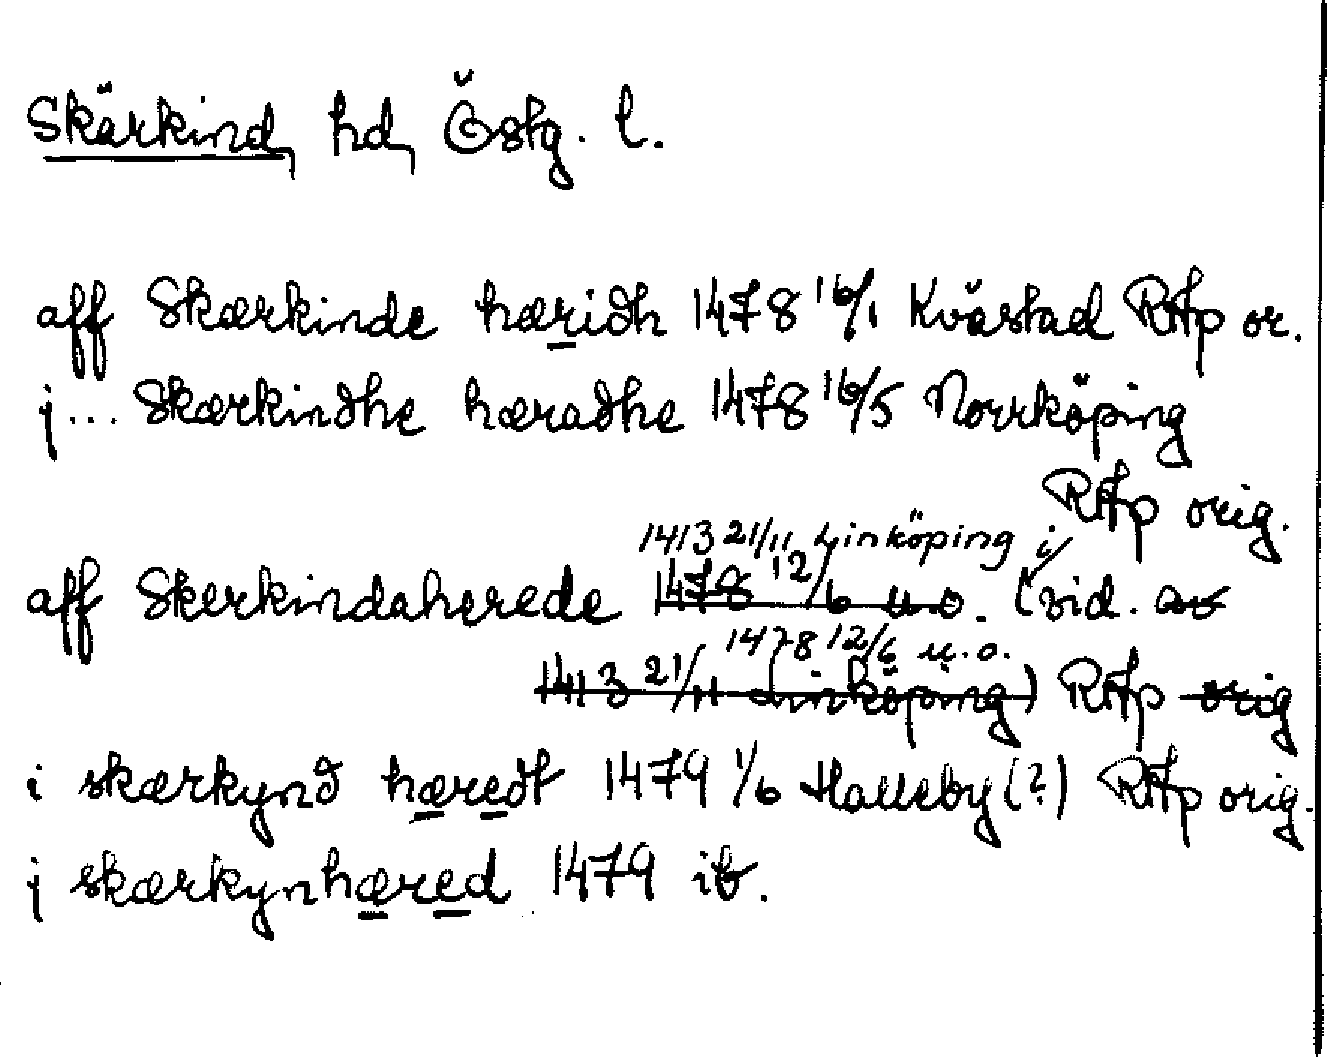 Skärkind, hd, Östg. l.
aff Skærkinde hæridh 1478 16/1 Kvästad RAp or.
j... Skærkindhe hæradhe 1478 16/5 Norrköping
RAp orig.
1413 21/11 Linköping i
aff Skerkindaherede 1478 12/6 u.o. (vid. av
1478 12/6 u.o.
1413 21/11 Linköping) RAp orig
i skærkynd hæredt 1479 1/6 Halleby (?) RAp orig.
j skærkynhæred 1479 ib.